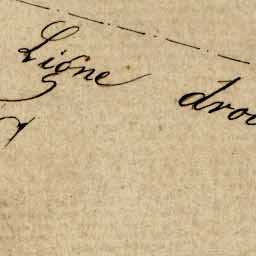 Ligne droi